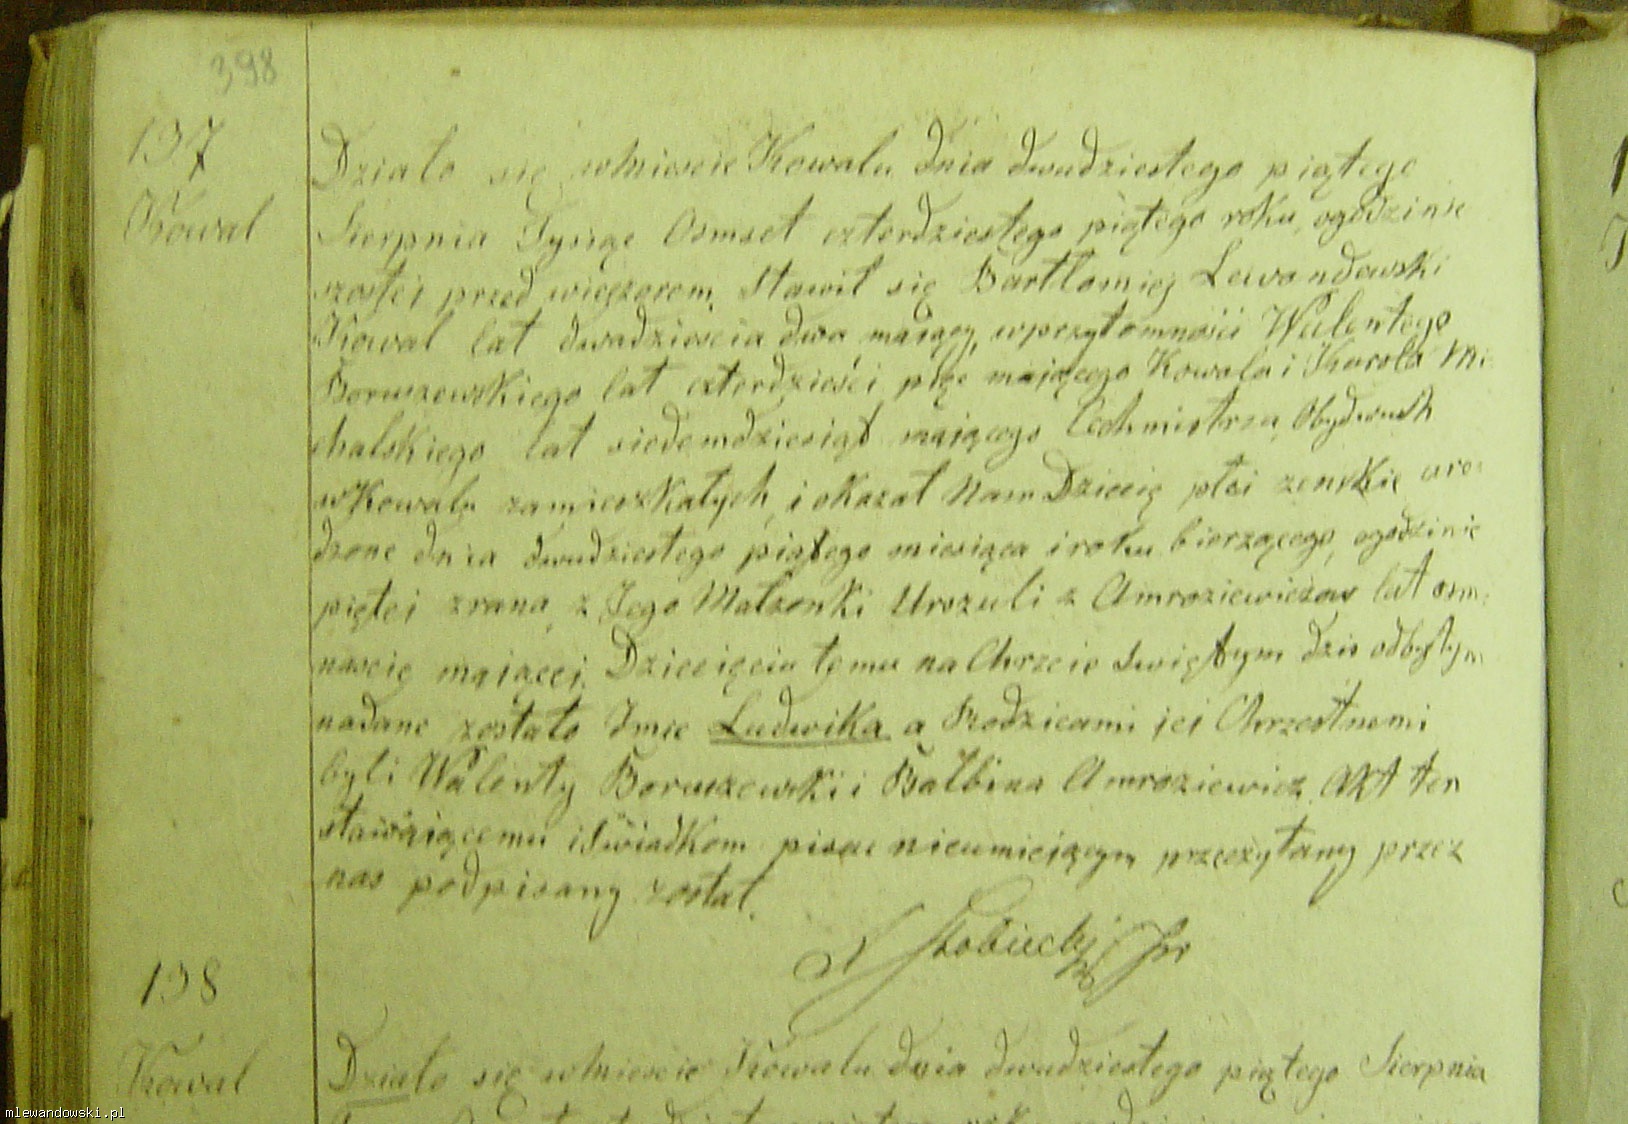 398
137
Kowal
Działo się w Mieście Kowalu dnia dwudziestego piątego
Sierpnia Tysiąc Osmset czterdziestego piątego roku, o godzinie
szostei przed wieczorem, Stawił się Bartłomiej Lewandowski
Kowal lat dwadzieścia dwa maiący, w przytomności Walentego
Boruszewskiego lat czterdzieści pięc maiącego Kowala i Karola Mi-
chalskiego lat siedemdziesiąt maiącego Cechmistrza, Obydwuch
w Kowalu zamieszkałych, i okazał Nam Dziecię płci zenskie uro-
dzone dnia dwudziestego piątego miesiąca i roku bierzącego, o godzinie
piątei zrana, z Jego Małzonki Urszuli z Amroziewiczow lat osm-
naście maiącei, Dziecięciu temu na Chrzcie Swiętym dzis odbytym
nadane zostało Imie Ludwika a Rodzicami iei Chrzestnemi
byli Walenty Boruszewski i Balbina Amroziewicz, Akt ten
stawaiącemu i Swiadkom pisac nieumieiącym przeczytany przez
nas podpisany został.
138
Kowal
Działo się w Mieście Kowalu dnia dwudziestego piątego Sierpnia
mlewandowski.pl